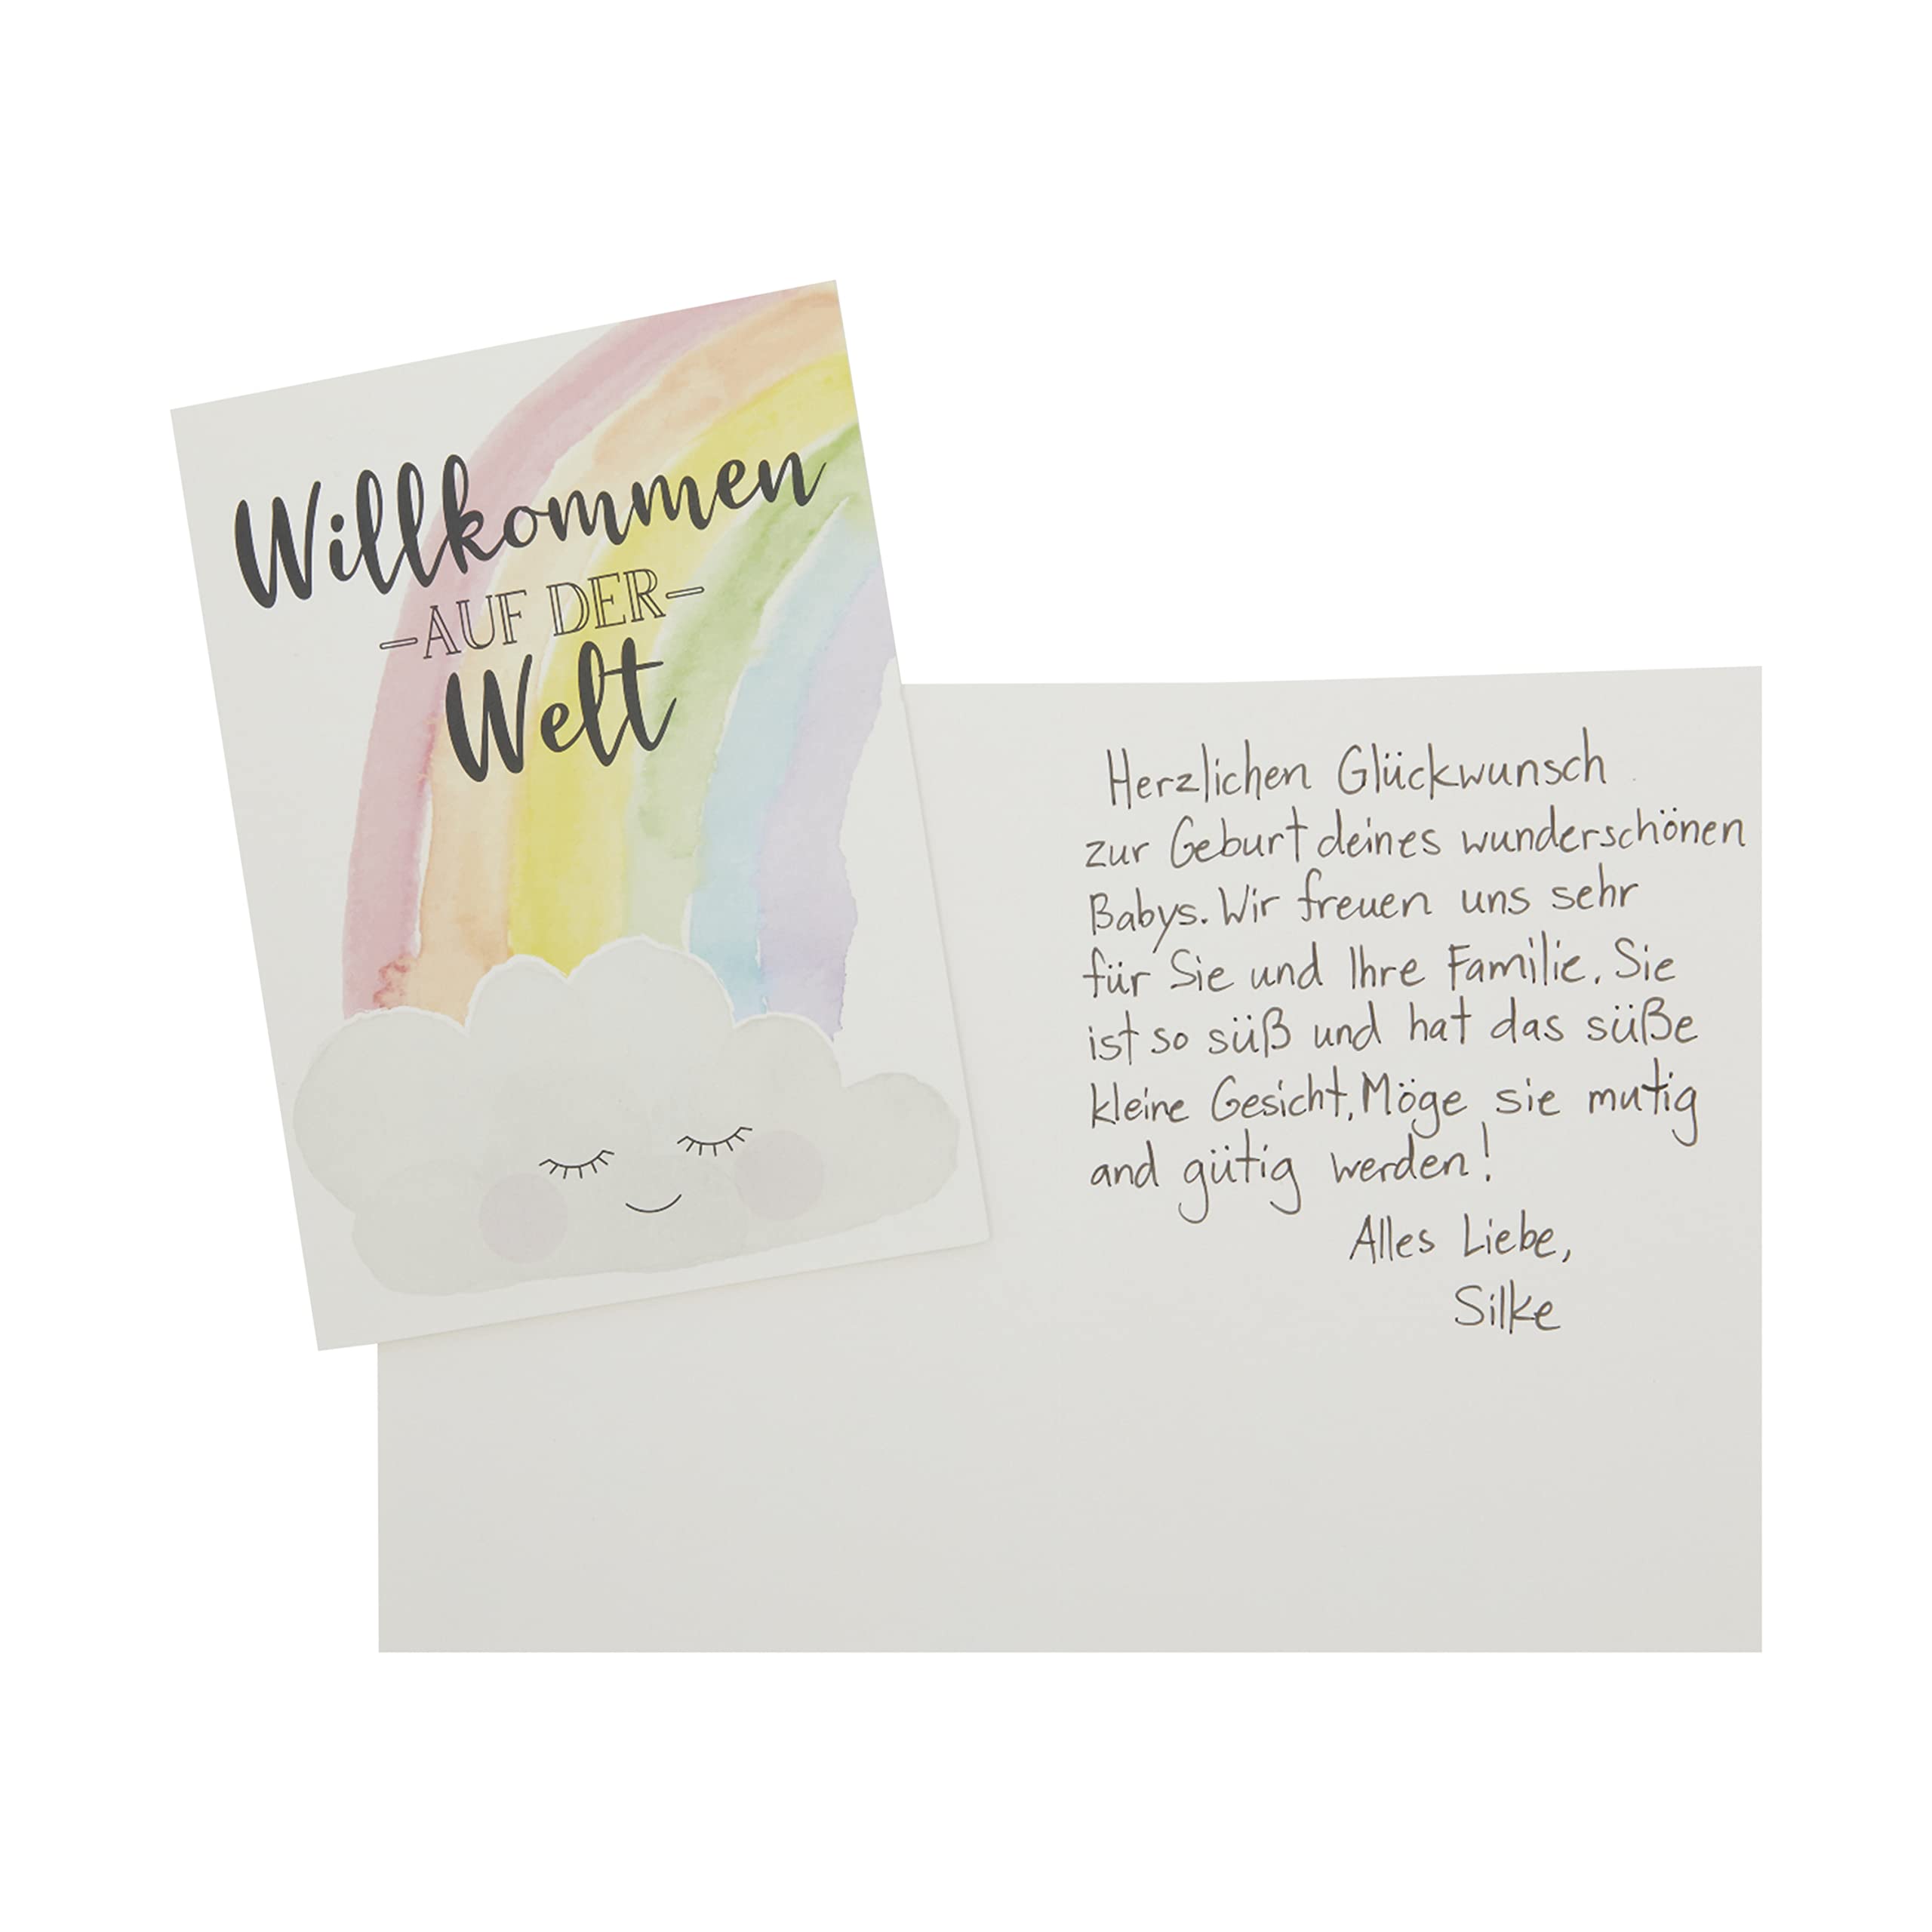 Willkommen
-AUF DER-
Welt
Herzlichen Glückwunsch
zur Geburt deines wunderschönen
Babys. Wir freuen uns sehr
für Sie und Ihre Familie. Sie
ist so süß und hat das süße
kleine Gesicht. Möge sie mutig
and gütig werden!
Alles Liebe,
Silke